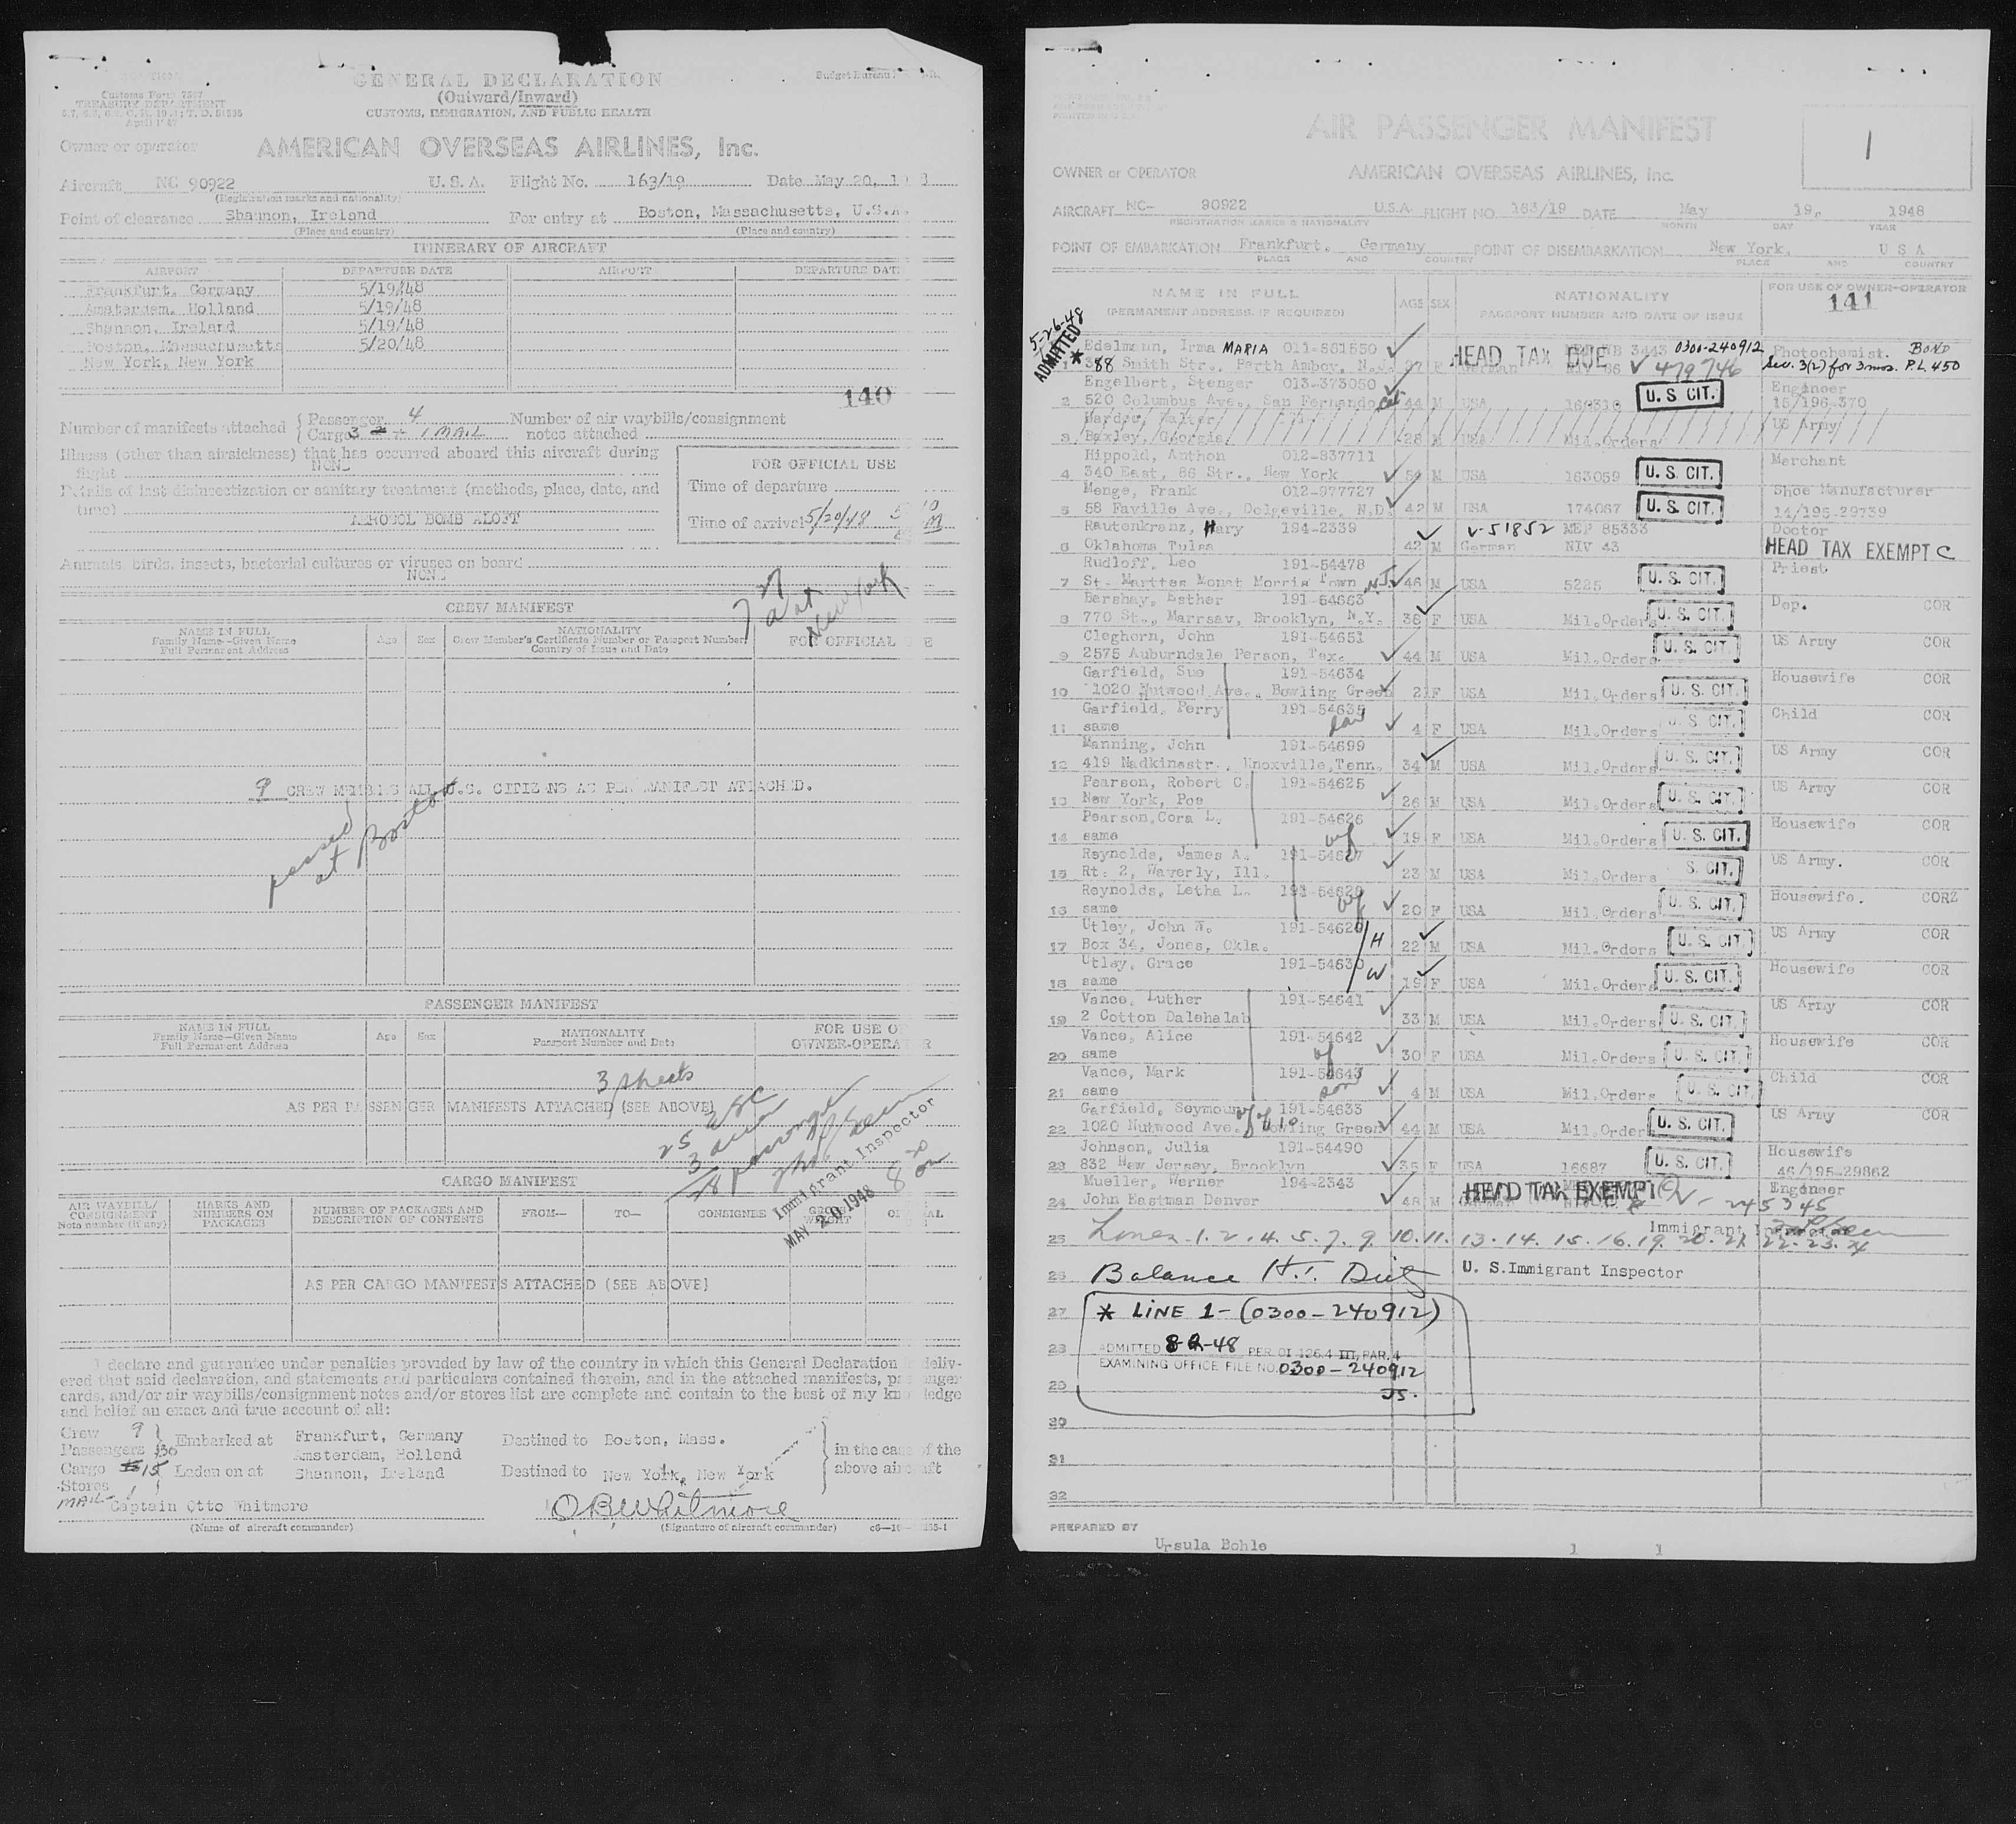 GENERAL DECLARATION
(Outward/Inward)
CUSTOMS, IMMIGRATION, AND PUBLIC HEALTH
Customs Form 7507
TREASURY DEPARTMENT
Owner or operator AMERICAN OVERSEAS AIRLINES, Inc.
Aircraft NC 90922 U.S.A. Flight No. 163/19 Date May 20, 19 8
(Registration marks and nationality)
Point of clearance Shannon, Ireland For entry at Boston, Massachusetts, U.S.A.
(Place and country) (Place and country)
ITINERARY OF AIRCRAFT
AIRPORT DEPARTURE DATE AIRPORT DEPARTURE DAT
Frankfurt, Germany 5/19/48
Amsterdam, Holland 5/19/48
Shannon, Ireland 5/19/48
Boston, Massachusetts 5/20/48
New York, New York
140
Number of manifests attached
Passenger 4 Number of air waybills/consignment
Cargo 3 1 MAIL notes attached
Illness (other than airsickness) that has occurred aboard this aircraft during
flight NONE
Details of last disinsectization or sanitary treatment (methods, place, date, and
time)
AEROSOL BOMB ALOFT
FOR OFFICIAL USE
Time of departure
Time of arrival 5/20/48
Animals, birds, insects, bacterial cultures or viruses on board
NONE
at New York
CREW MANIFEST
NAME IN FULL
Family Name—Given Name
Full Permanent Address
Age Sex
NATIONALITY
Crew Member's Certificate Number or Passport Number,
Country of Issue and Date
FOR OFFICIAL E
9 CREW MEMBERS ALL U.S. CITIZENS AS PER MANIFEST ATTACHED.
passed
at Boston
PASSENGER MANIFEST
NAME IN FULL
Family Name—Given Name
Full Permanent Address
Age Sex
NATIONALITY
Passport Number and Date
FOR USE O
OWNER-OPERA R
3 sheets
AS PER PASSENGER MANIFESTS ATTACHED (SEE ABOVE)
25 USC
3 alien
28 passenger
Immigrant Inspector
MAY 20 1948
CARGO MANIFEST
AIR WAYBILL/
CONSIGNMENT
Note number (if any)
MARKS AND
NUMBERS ON
PACKAGES
NUMBER OF PACKAGES AND
DESCRIPTION OF CONTENTS
FROM— TO— CONSIGNEE
GROSS
WEIGHT
AS PER CARGO MANIFESTS ATTACHED (SEE ABOVE)
I declare and guarantee under penalties provided by law of the country in which this General Declaration i deliv-
ered that said declaration, and statements and particulars contained therein, and in the attached manifests, pas enger
cards, and/or air waybills/consignment notes and/or stores list are complete and contain to the best of my kno ledge
and belief an exact and true account of all:
Crew 9
Passengers 30
Cargo 15
Stores
MAIL 1
Embarked at Frankfurt, Germany
Amsterdam, Holland
Laden on at Shannon, Ireland
Destined to Boston, Mass.
Destined to New York, New York
in the case of the
above aircraft
Captain Otto Whitmore
(Name of aircraft commander)
O B Whitmore
(Signature of aircraft commander)
AIR PASSENGER MANIFEST
1
OWNER or OPERATOR AMERICAN OVERSEAS AIRLINES, Inc.
AIRCRAFT NC- 90922 U.S.A. FLIGHT NO. 163/19 DATE May 19, 1948
REGISTRATION MARKS & NATIONALITY MONTH DAY YEAR
POINT OF EMBARKATION Frankfurt, Germany POINT OF DISEMBARKATION New York, U S A
PLACE AND COUNTRY PLACE AND COUNTRY
NAME IN FULL
(PERMANENT ADDRESS, IF REQUIRED)
AGE SEX
NATIONALITY
PASSPORT NUMBER AND DATE OF ISSUE
FOR USE OF OWNER-OPERATOR
141
5-26-48
ADMITTED
*
Edelmann, Irma MARIA 011-881550 3443 0300-240912 Photochemist. BOND
1 88 Smith Str., Perth Amboy, N.J. 27 F German HEAD TAX DUE V 479746 Sec. 3(2) for 3 mos. P.L. 450
Engelbert, Stenger 013-373050 Engineer
2 520 Columbus Ave., San Fernando Cal 44 M USA 160310 U. S CIT. 15/196-370
Harder, Walter US Army
3 Baxley, Georgia 28 M USA Mil.Orders
Hippold, Anthon 012-837711 Merchant
4 340 East, 86 Str., New York 54 M USA 163059 U. S. CIT.
Menge, Frank 012-977727 Shoe Manufacturer
5 58 Faville Ave., Dolgeville, N.D. 42 M USA 174067 U. S. CIT. 14/195-29739
Rautenkranz, Hary 194-2339 V-51852 MEP 85333 Doctor
6 Oklahoma Tulsa 42 M German NIV 43 HEAD TAX EXEMPT C
Rudloff, Leo 191-54478 Priest
7 St. Marites Monat Morris Town N.J. 46 M USA 5225 U. S. CIT.
Barshay, Esther 191-54663 Dep. COR
8 770 St., Marrsav, Brooklyn, N.Y. 38 F USA Mil.Orders U. S. CIT.
Cleghorn, John 191-54651 US Army COR
9 2575 Auburndale Person, Tex. 44 M USA Mil.Orders U. S. CIT.
Garfield, Sue 191-54634 Housewife COR
10 1020 Nutwood Ave., Bowling Green 2 F USA Mil.Orders U. S. CIT.
Garfield, Perry 191-54635 Child COR
11 same 4 F USA Mil.Orders U. S. CIT.
Manning, John 191-54699 US Army COR
12 419 Nadkinsstr., Knoxville, Tenn. 34 M USA Mil.Orders U. S. CIT.
Pearson, Robert C. 191-54625 US Army COR
13 New York, Poe 26 M USA Mil.Orders U. S. CIT.
Pearson, Cora L. 191-54626 Housewife COR
14 same wf 19 F USA Mil.Orders U. S. CIT.
Reynolds, James A. 191-54627 US Army. COR
15 Rt. 2, Waverly, Ill. 23 M USA Mil.Orders S. CIT.
Reynolds, Letha L. 191-54628 Housewife. CORZ
16 same wf 20 F USA Mil.Orders U. S. CIT.
Utley, John W. 191-54629 US Army COR
17 Box 34, Jones, Okla. H 22 M USA Mil.Orders U. S. CIT.
Utley, Grace 191-54630 Housewife COR
18 same W 19 F USA Mil.Orders U. S. CIT.
Vance, Luther 191-54641 US Army COR
19 2 Cotton Dalehalab 33 M USA Mil.Orders U. S. CIT.
Vance, Alice 191-54642 Housewife COR
20 same wf 30 F USA Mil.Orders U. S. CIT.
Vance, Mark 191-54643 Child COR
21 same son 4 M USA Mil.Orders U. S. CIT.
Garfield, Seymour 191-54633 US Army COR
22 1020 Nutwood Ave. Bowling Green 44 M USA Mil.Orders U. S. CIT.
Johnson, Julia 191-54490 Housewife
23 832 New Jersey, Brooklyn 36 F USA 16687 U. S. CIT. 46/195-29862
Mueller, Werner 194-2343 Engineer
24 John Eastman Denver 48 M HEAD TAX EXEMPT V-245345
Immigrant Inspector
25 Lines 1. 2. 4. 5. 7. 9. 10. 11. 13. 14. 15. 16. 19. 20. 21. 22. 23. 24
26 Balance H.T. Dietz U. S. Immigrant Inspector
27 * LINE 1- (0300-240912)
28 ADMITTED 8-2-48 PER OI 126.4 III, PAR. 4
EXAMINING OFFICE FILE NO. 0300-240912
29 JS.
30
31
32
PREPARED BY
Ursula Bohle 1 1